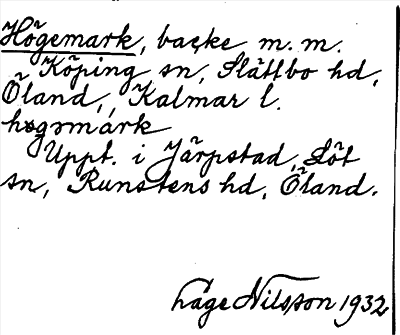 Högemark, backe m.m.
Köping sn, Slättbo hd,
Öland, Kalmar l.
høgəmárk
Uppt. i Järpstad, Löt
sn, Runstens hd, Öland.
Låge Nilsson 1932